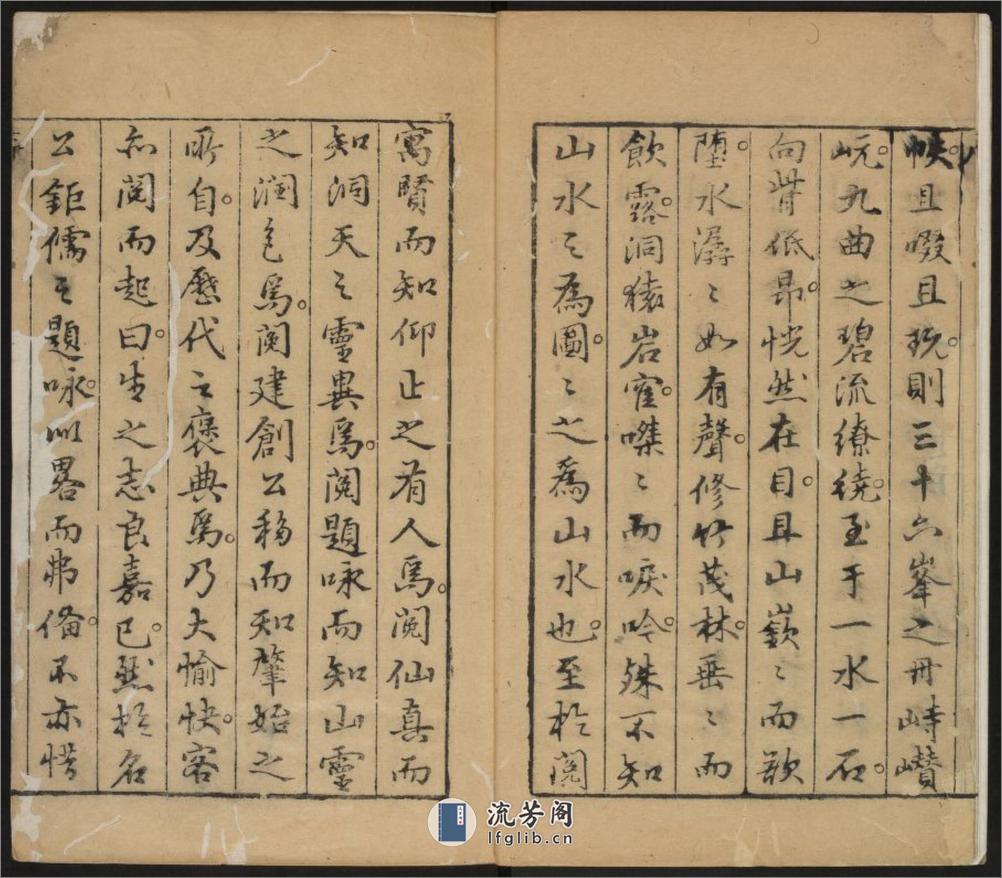 帙且啜且玩則三十六峯之丹峙巑
岏九曲之碧流繚繞至于一水一石
向背低昂恍然在目且山嶔〻而欲
墮水潺〻如有聲修竹茂林垂〻而
飲露洞猿岩寉嘷〻而唳吟殊不知
山水之為圖〻之為山水也至於閱
寓賢而知仰止之有人焉閱仙真而
知洞天之靈異焉閱題咏而知山靈
之潤色焉閱建創公移而知肇始之
所自及歷代之褒典焉乃大愉快客
亦閱而起曰生之志良嘉已然於名
公鉅儒之題咏似畧而弗備不亦惜
流芳阁
lfglib.cn